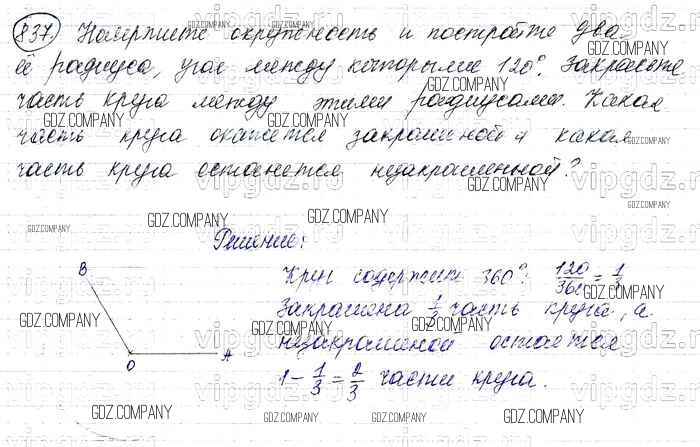 837. Начертите окружность и постройте два
её радиуса, угол между которыми 120°. Закрасьте
часть круга между этими радиусами. Какая
часть круга окажется закрашенной и какая
часть круга останется незакрашенной?
Решение:
Круг содержит 360°. 120/360 = 1/3
Закрашена 1/3 часть круга, а
незакрашеной остается
1 - 1/3 = 2/3 части круга.
B
O
A
GDZ.COMPANY
vipgdz.ru